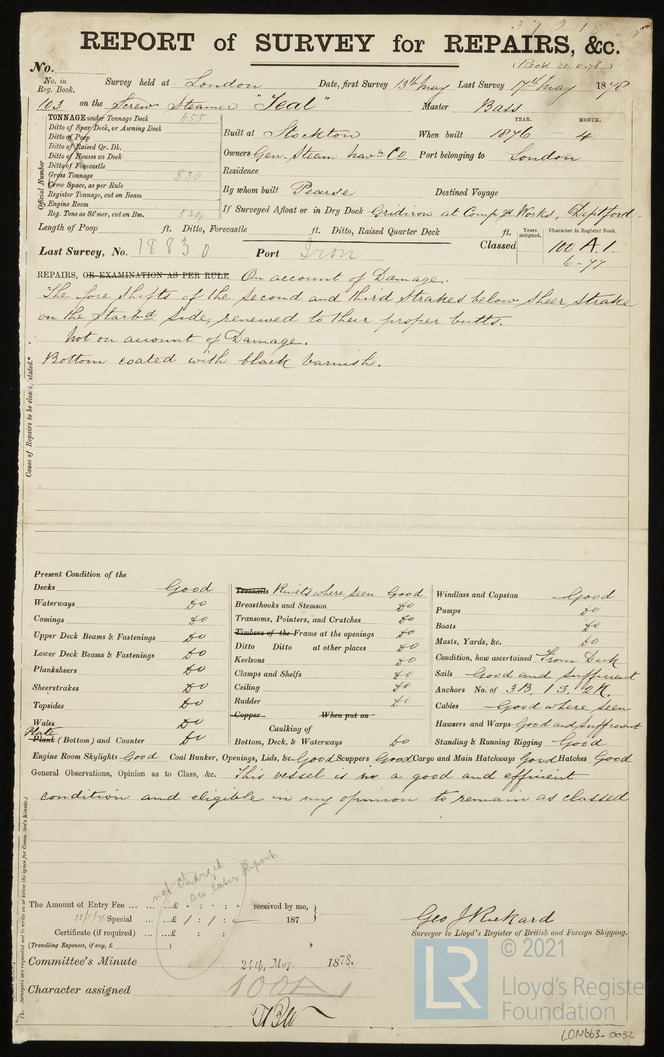 REPORT of SURVEY for REPAIRS, &c.
No.
(Rec'd 22.5.78)
No. in Reg. Book.
Survey held at London Date, first Survey 13th May Last Survey 17th May 1878
103 on the Screw Steamer "Teal" Master Bass
TONNAGE under Tonnage Deck 655
Ditto of Spar Deck, or Awning Deck
Ditto of Poop
Ditto of Raised Qr. Dk.
Ditto of House on Deck
Ditto of Forecastle
Gross Tonnage 830
Crew Space, as per Rule
Register Tonnage, cut on Beam
Engine Room
Reg. Tons as St'mer, cut on Bm.
Official Number
YEAR. MONTH.
Built at Stockton When built 1876 - 4
Owners Gen. Steam Navn Co Port belonging to London
Residence
By whom built Pearse Destined Voyage
If Surveyed Afloat or in Dry Dock Gridiron at Compys Works, Deptford.
Length of Poop ft. Ditto, Forecastle ft. Ditto, Raised Quarter Deck ft.
Years assigned. Character in Register Book.
Last Survey, No. 18830 Port Iron Classed 100 A.1.
6-77
REPAIRS, OR EXAMINATION AS PER RULE On account of Damage.
The fore shifts of the second and third strakes below sheer strake
on the Starbd side, renewed to their proper butts.
Not on account of Damage.
Bottom coated with black varnish.
Cause of Repairs to be clearly stated.*
Present Condition of the
Decks Good
Waterways Do
Comings Do
Upper Deck Beams & Fastenings Do
Lower Deck Beams & Fastenings Do
Planksheers Do
Sheerstrakes Do
Topsides Do
Wales Do
Plate
Plank (Bottom) and Counter Do
Treenails Rivets where seen Good
Breasthooks and Stemson Do
Transoms, Pointers, and Crutches Do
Timbers of the Frame at the openings Do
Ditto Ditto at other places Do
Keelsons Do
Clamps and Shelfs Do
Ceiling Do
Rudder Do
Copper When put on
Caulking of
Bottom, Deck, & Waterways Do
Windlass and Capstan Good
Pumps Do
Boats Do
Masts, Yards, &c. Do
Condition, how ascertained From Deck
Sails Good and sufficient
Anchors No. of 3 B. 1 S. 2 K.
Cables Good where seen
Hawsers and Warps Good and sufficient
Standing & Running Rigging Good
Engine Room Skylights Good Coal Bunker, Openings, Lids, &c. Good Scuppers Good Cargo and Main Hatchways Good Hatches Good
General Observations, Opinion as to Class, &c. This vessel is in a good and efficient
condition and eligible in my opinion to remain as classed
not charged
see later Report
The Amount of Entry Fee £ : : received by me,
22/5/78 Special £ 1 : 1 : - 187
Certificate (if required) £ : :
(Travelling Expenses, if any, £ )
Geo J Rickard
Surveyor to Lloyd's Register of British and Foreign Shipping.
Committee's Minute 24th May 1878.
Character assigned 100A
© 2021
LR
Lloyd's Register
Foundation
LON663-0032